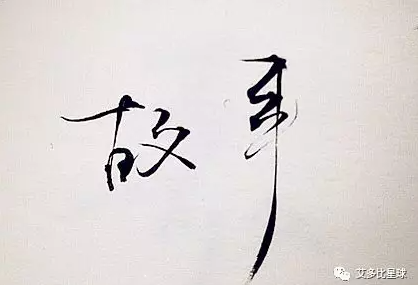 故事
艾多比星球